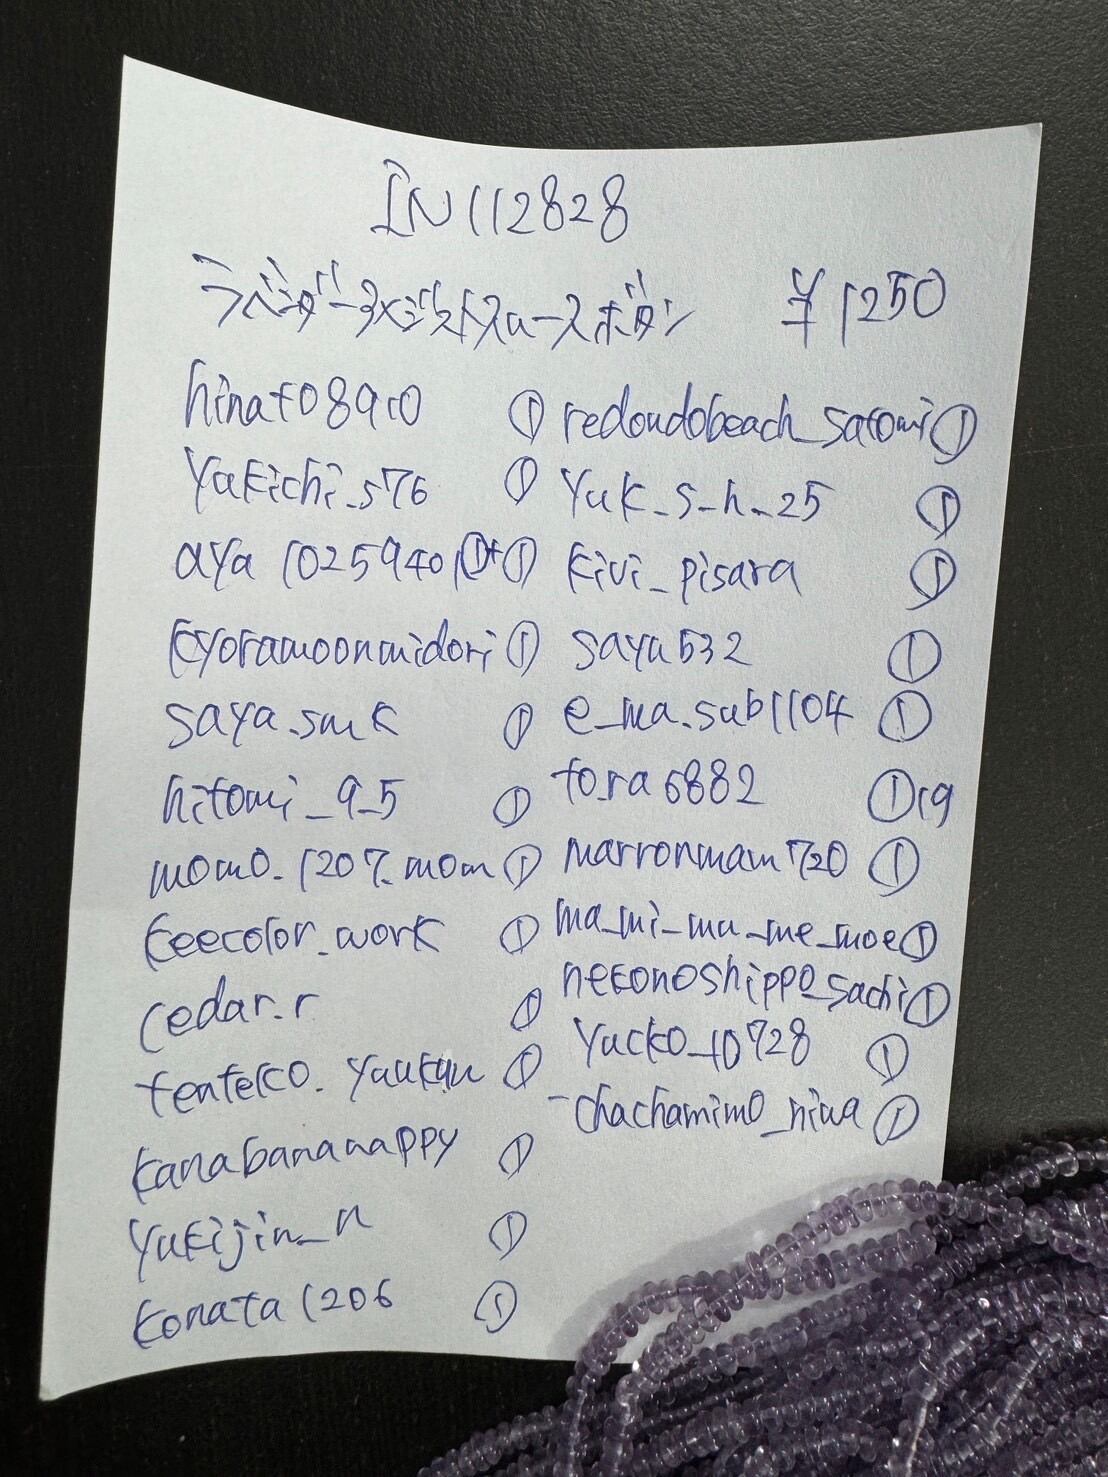 IN112828
ラベンダーアメジストスムースボタン ¥1250
hinat08910 ①
yukichi_s76 ①
aya10259401 ①+①
kyoramoonmidori ①
saya.smk ①
hitomi_9_5 ①
momo.1207.mom ①
keecolor_work ①
cedar.r ①
kanabananappy ①
yukijin_n ①
konata1206 ①
redondobeach_satomi ①
yuk_s_h_25 ①
kivi_pisara ①
sayu532 ①
e_ma.sub1104 ①
to.ra6882 ① ig
marronmam720 ①
ma_mi_mu_me_moe ①
nekonoshippo_sachi ①
yucko_t0728 ①
-chachamimo_niwa ①